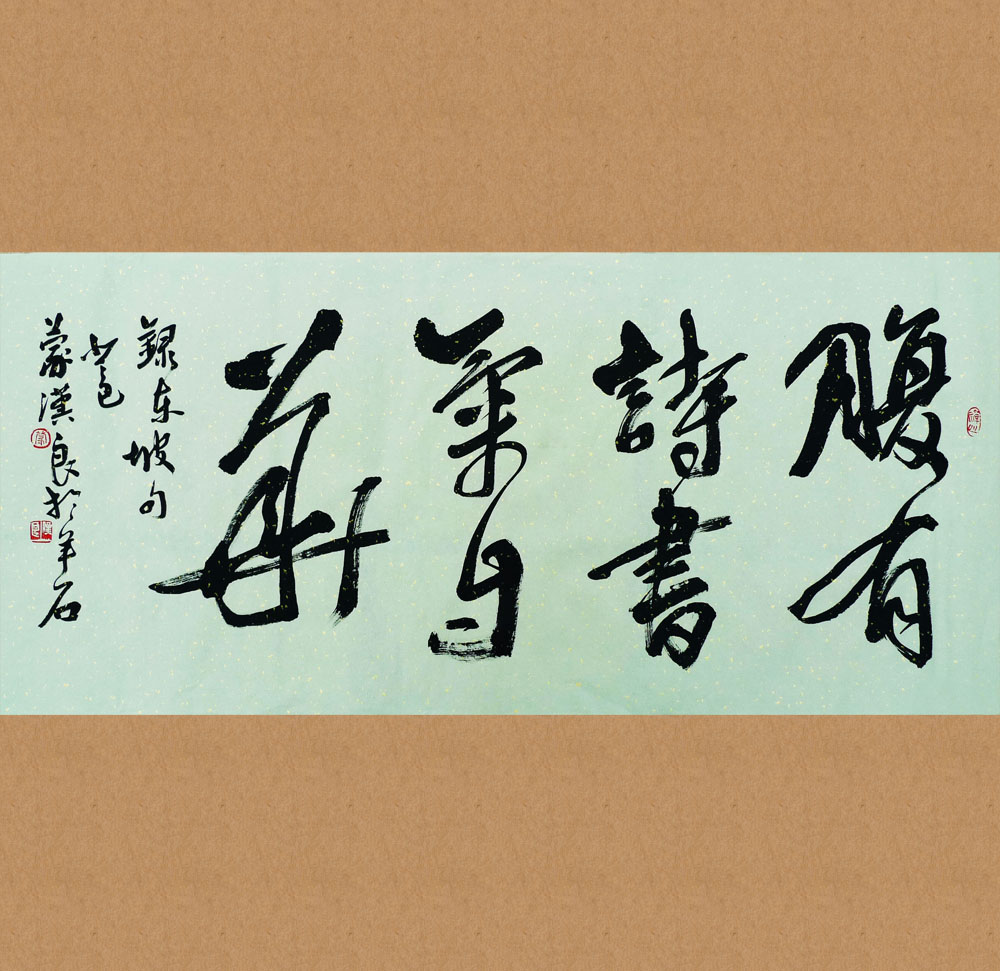 腹有
詩書
氣自
華
録東坡句
蒙漢良於羊石